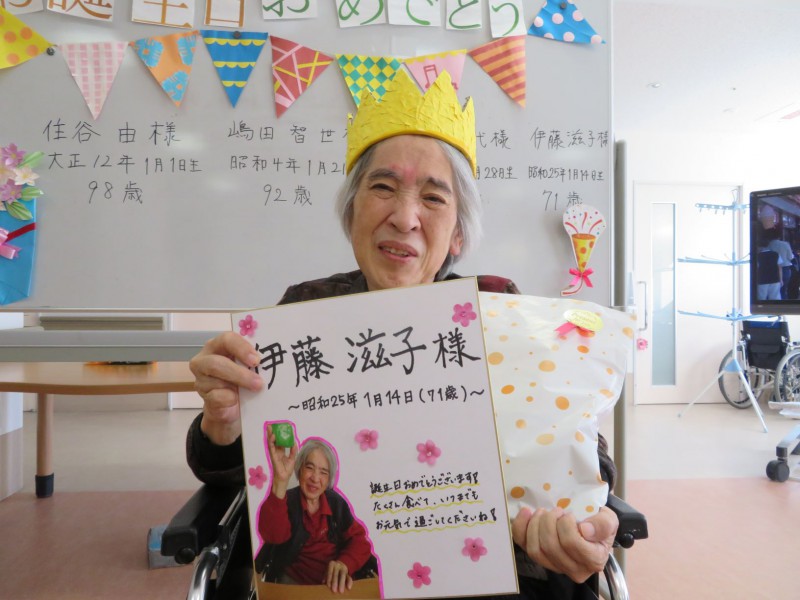 お誕生日おめでとう
住谷 由様
大正12年1月1日生
98歳
嶋田智世
昭和4年1月2
92歳
代様
月28日生
伊藤滋子様
昭和25年1月14日生
71歳
伊藤 滋子 様
～昭和25年1月14日(71歳)～
誕生日おめでとうございます!
たくさん食べて、いつまでも
お元気で過ごしてくださいね!